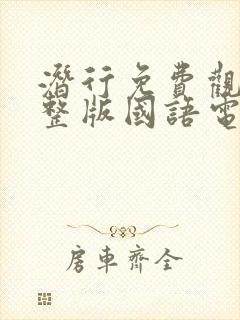 潛行免費觀
整版國語電
房車齊全